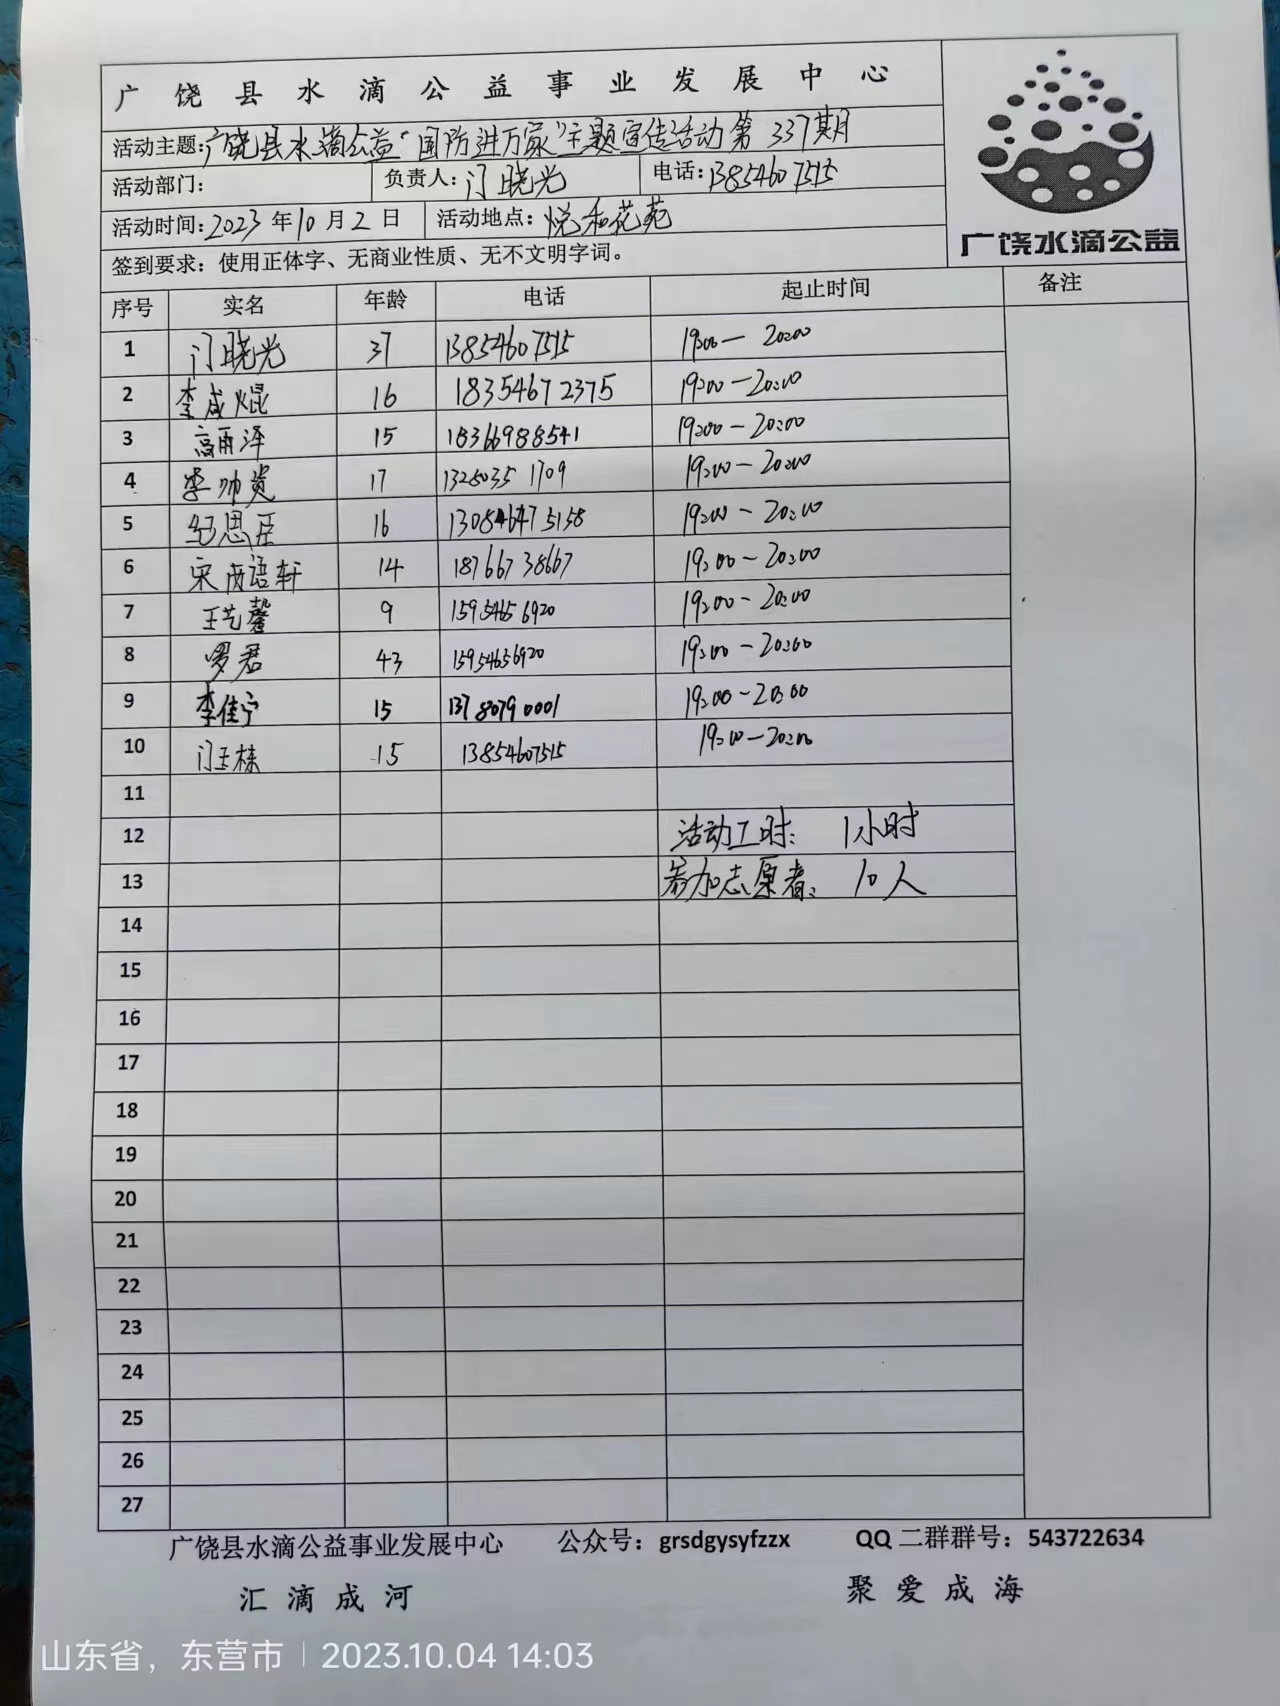 广饶县水滴公益事业发展中心
活动主题:广饶县水滴公益“国防进万家”主题宣传活动第337期
活动部门: 负责人:门晓光 电话:13854607515
活动时间:2023年10月2日 活动地点:悦和花苑
签到要求：使用正体字、无商业性质、无不文明字词。
广饶水滴公益
序号 实名 年龄 电话 起止时间 备注
1 门晓光 37 13854607515 19:00—20:00
2 李成焜 16 18354672375 19:00—20:00
3 高雨泽 15 18366988541 19:00—20:00
4 李帅贤 17 1325035 1709 19:00—20:00
5 纪思臣 16 13084647 5158 19:00—20:00
6 宋尚语轩 14 187667 38667 19:00—20:00
7 王艺馨 9 159 5465 6920 19:00—20:00
8 罗君 43 15954656920 19:00—20:00
9 李佳宁 15 137 8079 0001 19:00—20:00
10 门玉栋 15 13854607515 19:00—20:00
11
12 活动工时: 1小时
13 参加志愿者: 10人
14
15
16
17
18
19
20
21
22
23
24
25
26
27
广饶县水滴公益事业发展中心 公众号：grsdgysyfzzx QQ二群群号：543722634
汇滴成河 聚爱成海
山东省，东营市 | 2023.10.04 14:03